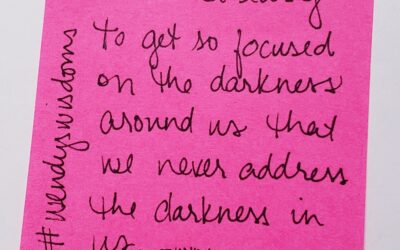 to get so focused
on the darkness
around us that
we never address
the darkness in
us
#wendyswisdoms